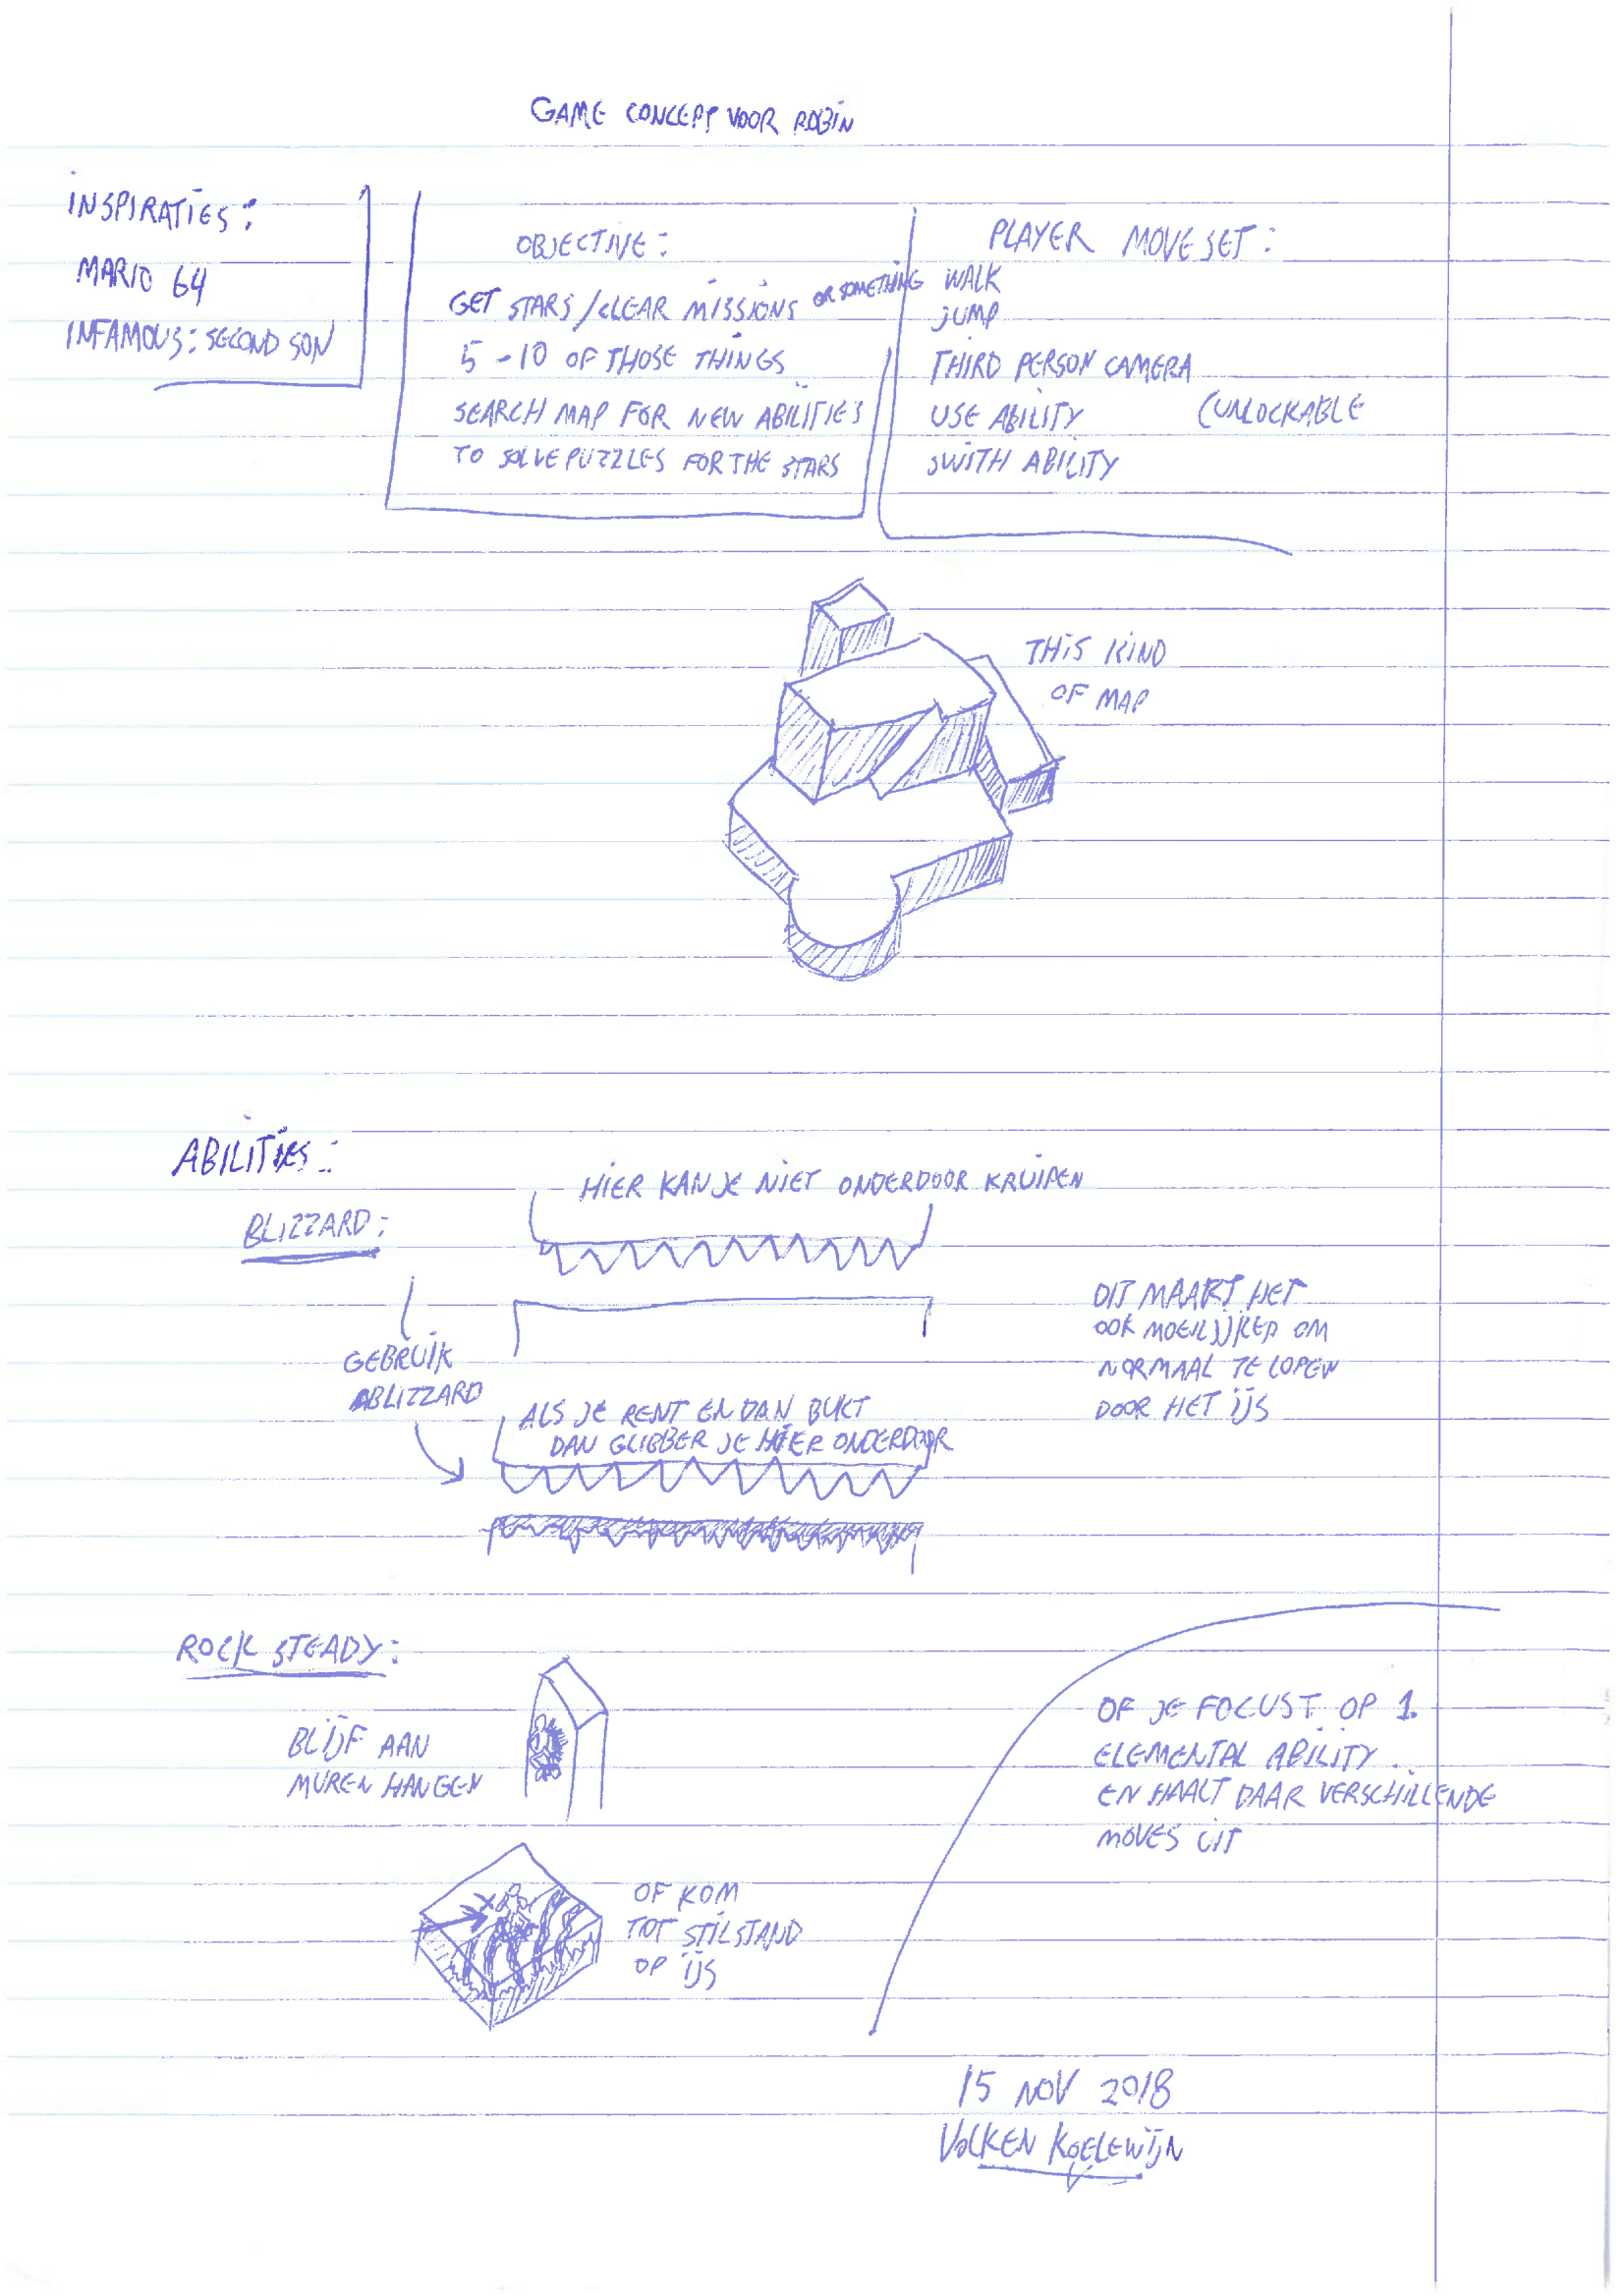 GAME CONCEPT VOOR ROBIN
INSPIRATIES:
MARIO 64
INFAMOUS: SECOND SON
OBJECTIVE:
GET STARS/CLEAR MISSIONS OR SOMETHING
5-10 OF THOSE THINGS
SEARCH MAP FOR NEW ABILITIES
TO SOLVE PUZZLES FOR THE STARS
PLAYER MOVESET:
WALK
JUMP
THIRD PERSON CAMERA
USE ABILITY (UNLOCKABLE
SWITH ABILITY
THIS KIND
OF MAP
ABILITIES:
BLIZZARD:
HIER KAN JE NIET ONDERDOOR KRUIPEN
GEBRUIK
BLIZZARD
ALS JE RENT EN DAN BUKT
DAN GLIBBER JE HIER ONDERDOOR
DIT MAAKT HET
OOK MOEILIJKER OM
NORMAAL TE LOPEN
DOOR HET IJS
ROCK STEADY:
BLIJF AAN
MUREN HANGEN
OF KOM
TOT STILSTAND
OP IJS
OF JE FOCUST OP 1
ELEMENTAL ABILITY
EN HAALT DAAR VERSCHILLENDE
MOVES UIT
15 NOV 2018
VOLKEN KOELEWIJN